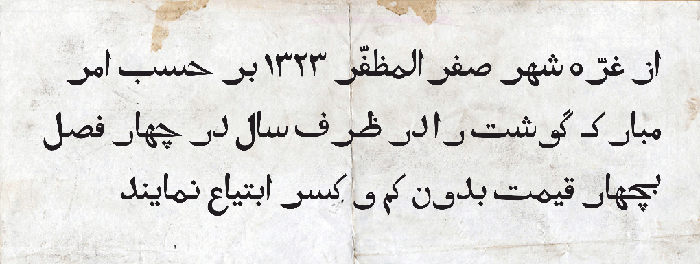 از غرّه شهر صفر المظفّر ۱۳۲۳ بر حسب امر
مبارک گوشت را در ظرف سال در چهار فصل
بچهار قیمت بدون کم و کسر ابتیاع نمایند